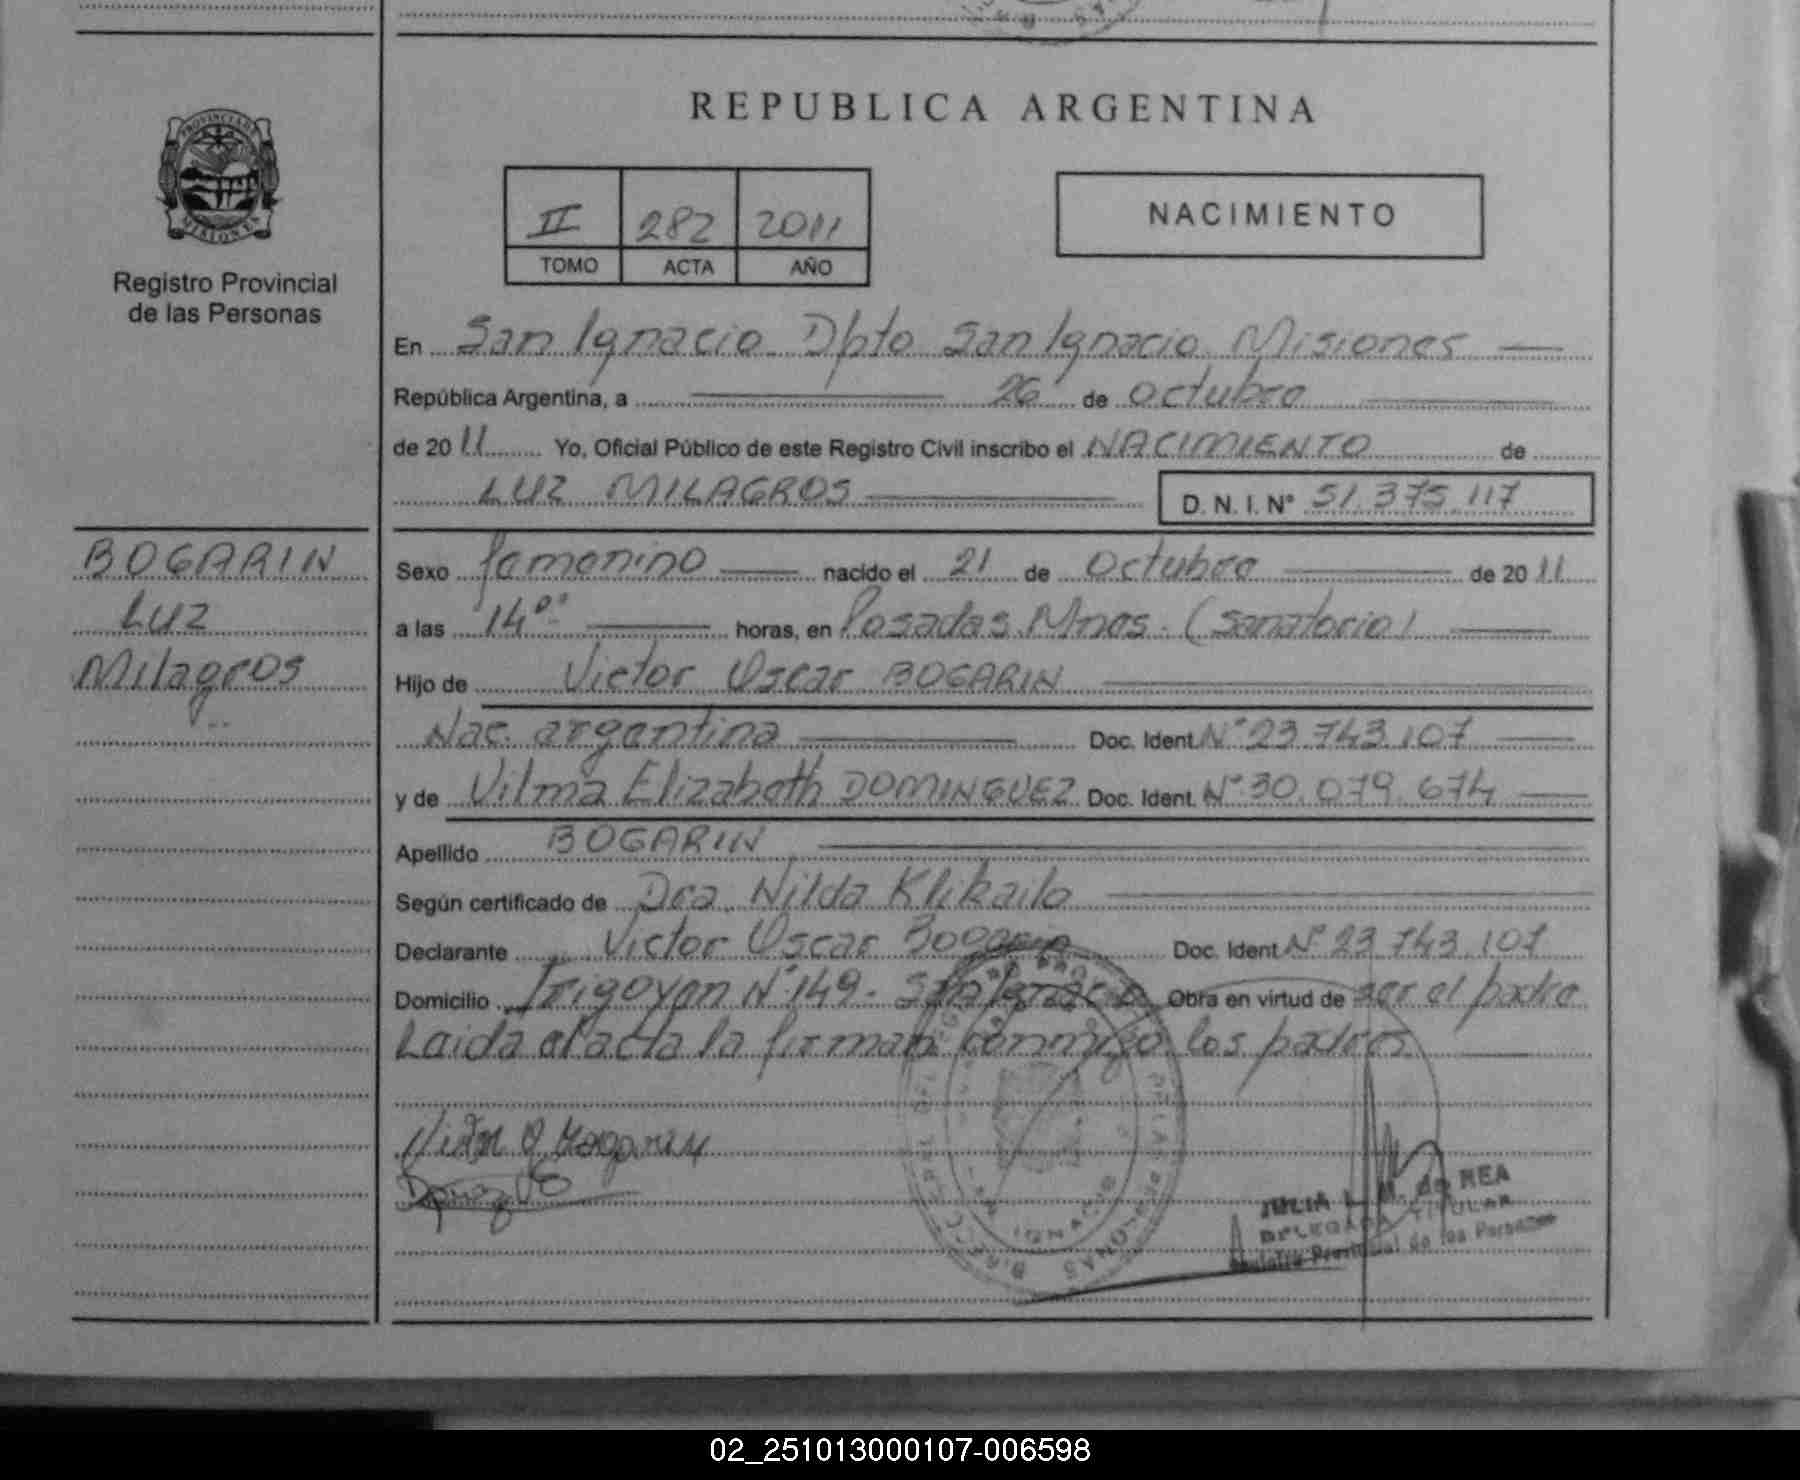 REPUBLICA ARGENTINA
PROVINCIA DE
MISIONES
Registro Provincial
de las Personas
II 282 2011
TOMO ACTA AÑO
NACIMIENTO
En San Ignacio Dpto San Ignacio Misiones
República Argentina, a 26 de Octubre
de 2011 Yo, Oficial Público de este Registro Civil inscribo el NACIMIENTO de
LUZ MILAGROS D. N. I. N° 51.375.117
BOGARIN
Luz
Milagros
Sexo femenino nacido el 21 de Octubre de 2011
a las 14°° horas, en Posadas Mnes. (Sanatorio)
Hijo de Victor Oscar BOGARIN
Nac. argentina Doc. Ident. N° 23.743.107
y de Vilma Elizabeth DOMINGUEZ Doc. Ident. N° 30.079.674
Apellido BOGARIN
Según certificado de Dra. Nilda Klikailo
Declarante Victor Oscar Bogarin Doc. Ident N° 23.743.107
Domicilio Irigoyen N° 149- San Ignacio Obra en virtud de ser el padre
Leida el acta la firman conmigo los padres
JULIA L. M. de REA
DELEGADA TITULAR
Registro Provincial de las Personas
02_251013000107-006598